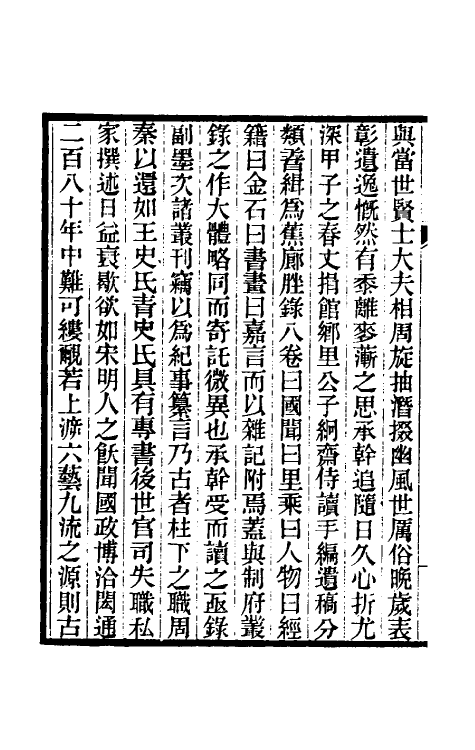 與當世賢士大夫相周旋抽潛掇幽風世厲俗晩歲表
彰遺逸慨然有黍離麥蔪之思承幹追隨日久心折尤
深甲子之春丈捐館鄉里公子絅齋侍讀手編遺稿分
類耆緝爲蕉廊脞錄八卷曰國聞曰里乘曰人物曰經
籍曰金石曰書畫曰嘉言而以雜記附焉蓋與制府叢
錄之作大體略同而寄託微異也承幹受而讀之亟錄
副墨次諸叢刊竊以為紀事纂言乃古者柱下之職周
秦以還如王史氏青史氏具有專書後世官司失職私
家撰述日益衰歇欲如宋明人之飫聞國政博洽閎通
二百八十年中難可縷覼若上游六藝九流之源則古